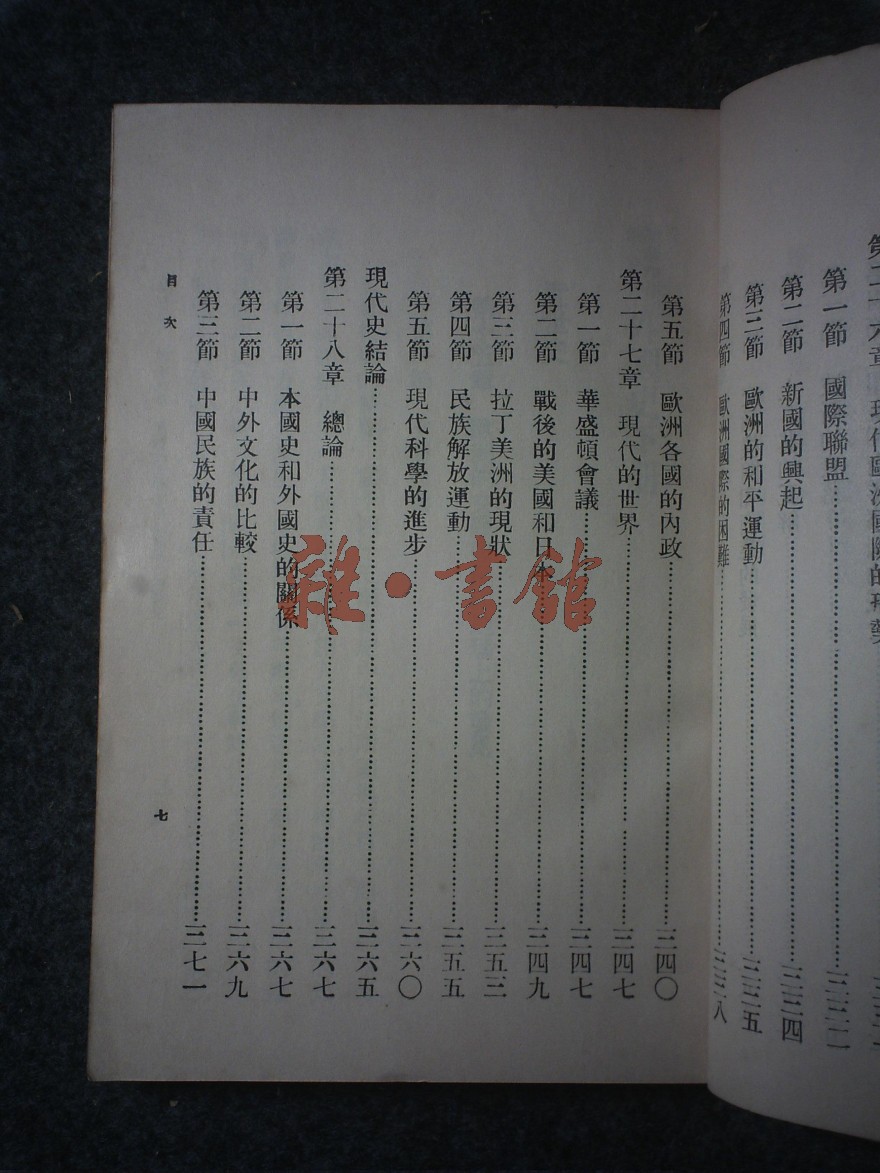 第一節　國際聯盟
第二節　新國的興起……三三四
第三節　歐洲的和平運動……三三五
第四節　歐洲國際的困難……三三八
第五節　歐洲各國的內政……三四〇
第二十七章　現代的世界……三四七
第一節　華盛頓會議……三四七
第二節　戰後的美國和日本……三四九
第三節　拉丁美洲的現狀……三五三
第四節　民族解放運動……三五五
第五節　現代科學的進步……三六〇
現代史結論……三六五
第二十八章　總論……三六七
第一節　本國史和外國史的關係……三六七
第二節　中外文化的比較……三六九
第三節　中國民族的責任……三七一
目次
七
雜·書館